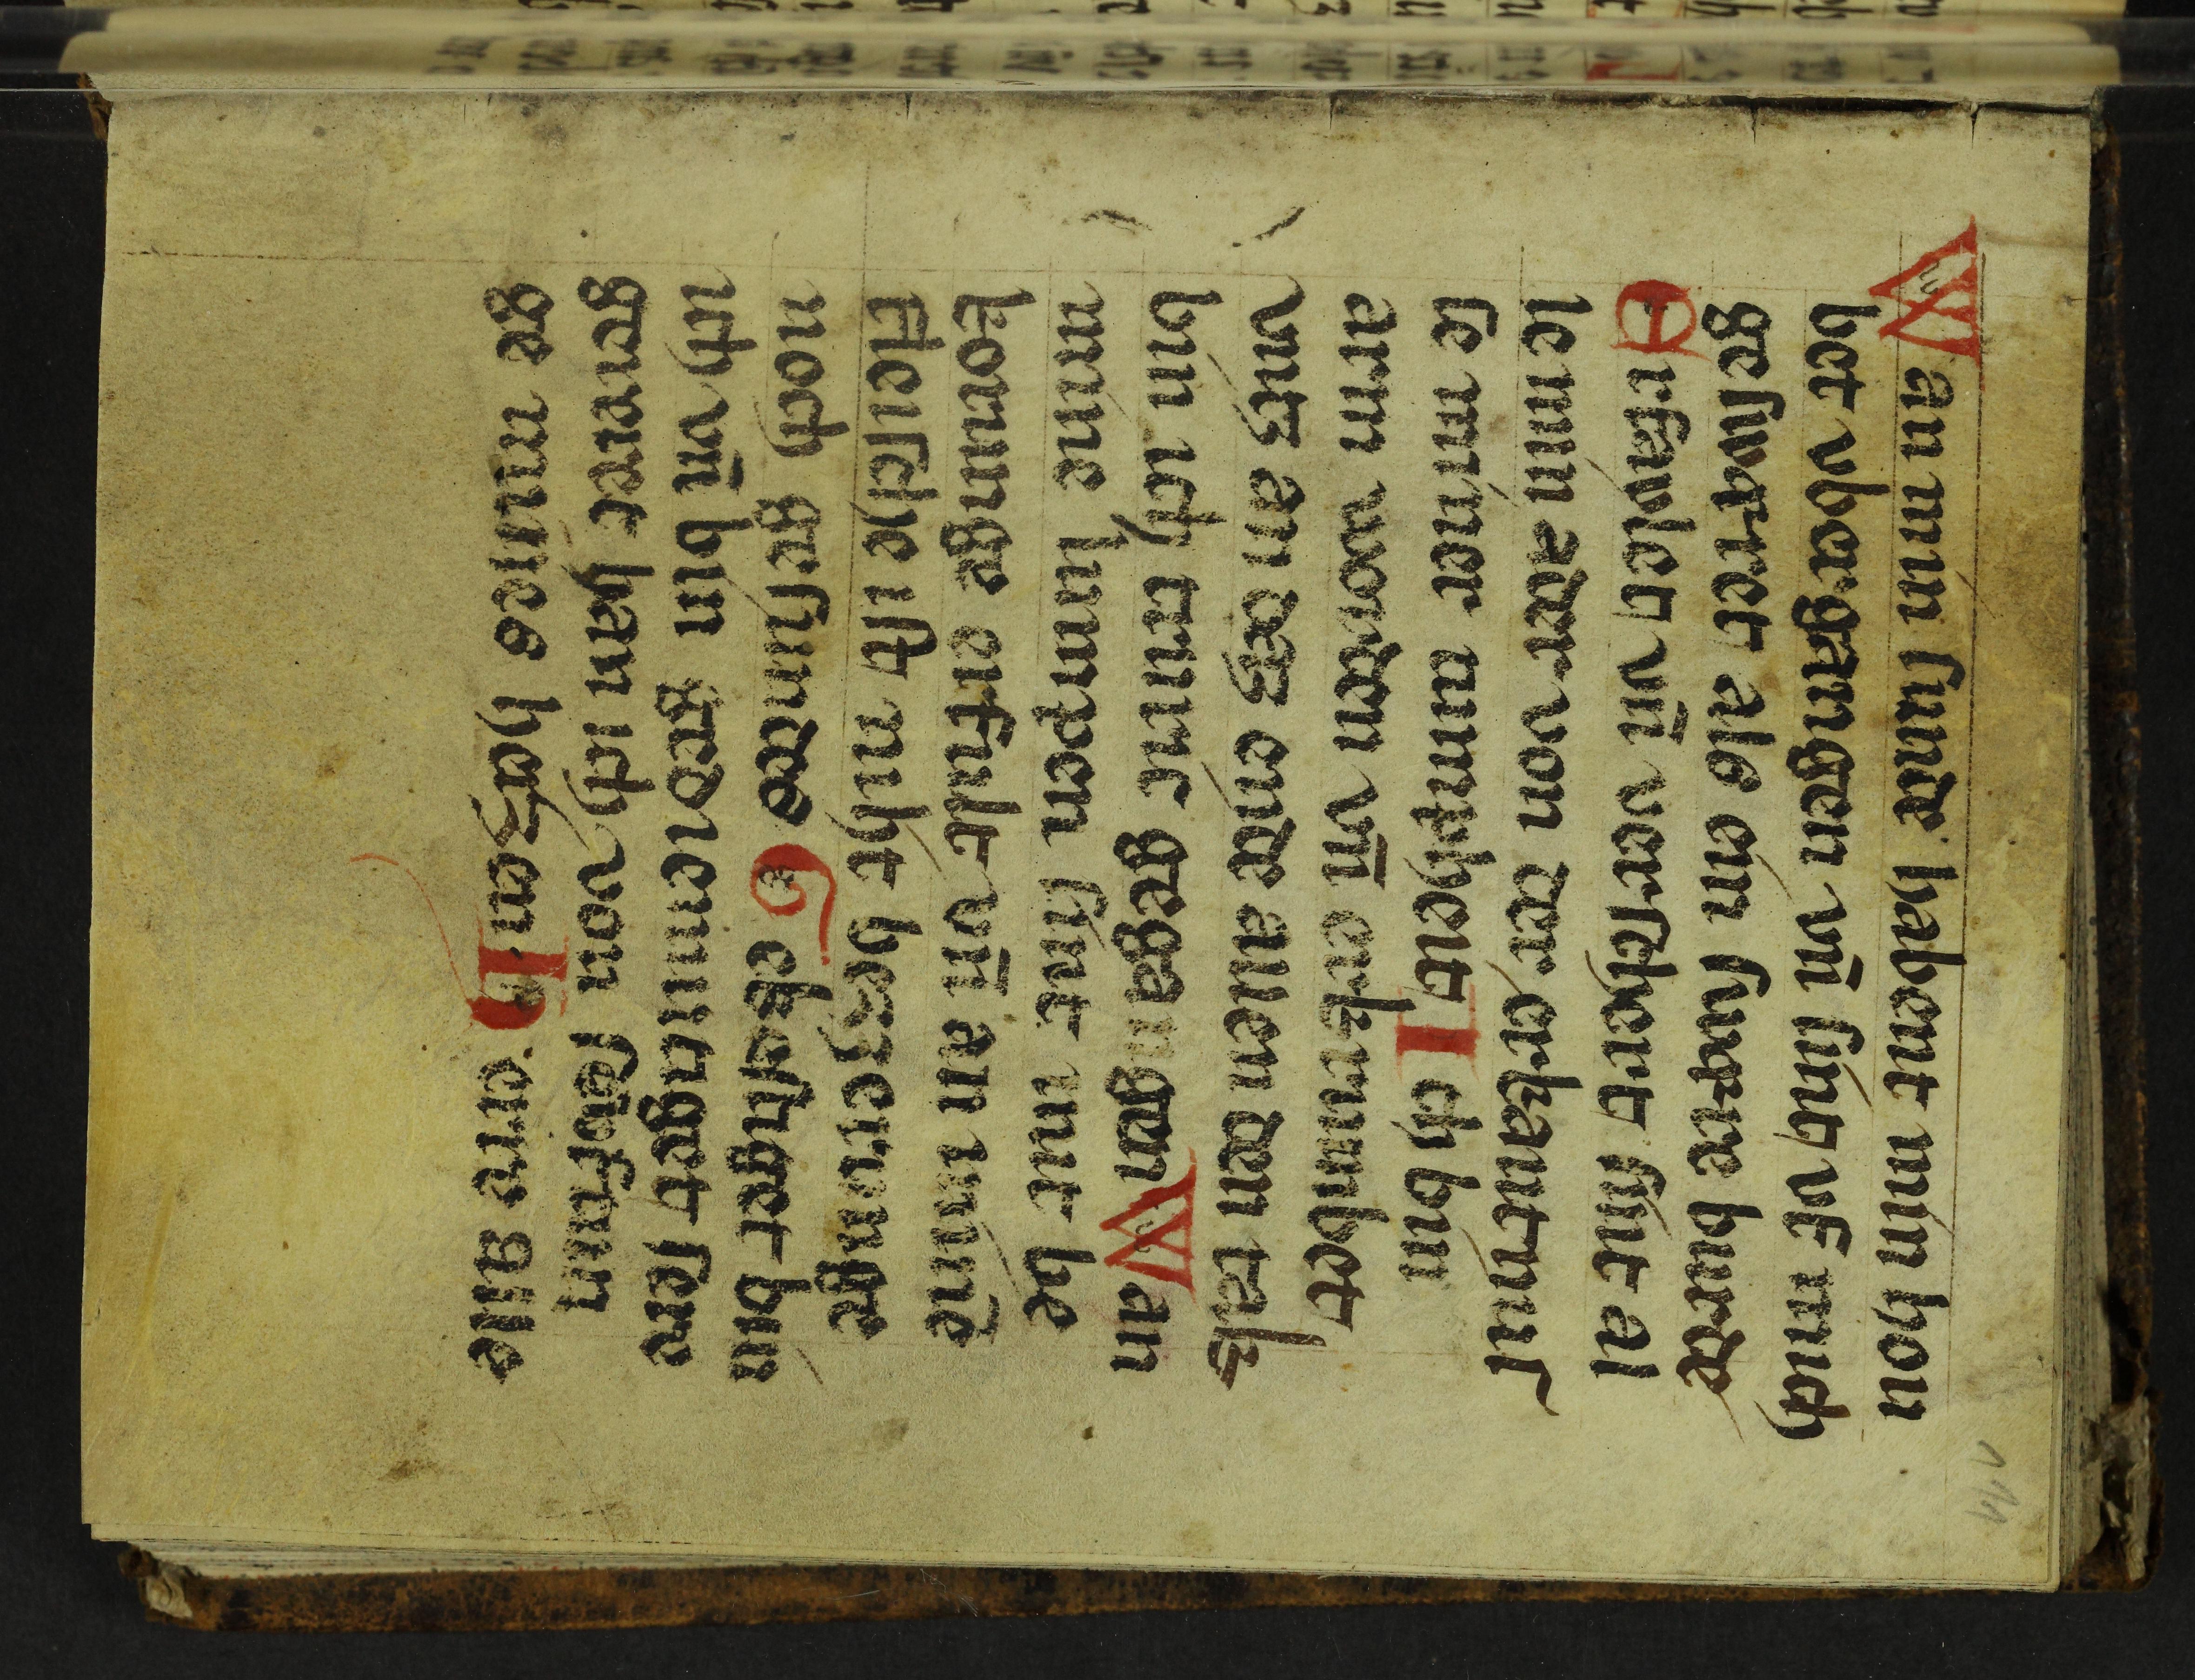 Wan min sunde habent min hou
bet vbergangen vn̄ sint vf mich
geswæret als ein swærre burde
Erfawlet vn̄ verscheret sint al
le min ader von der erkantnus
se miner tumpheit Ich bin
arm worden vn̄ erkrumbet
vntz an dz ende allen den tak
bin ich truric gegangen Wan
mine lumpen sint mit be
konunge erfult vn̄ an mime
fleische ist niht bezzerunge
noch gesundes Gekestiget bin
ich vn̄ bin gediemutiget sere
gerieret han ich von
ge mines herzen Herre alle